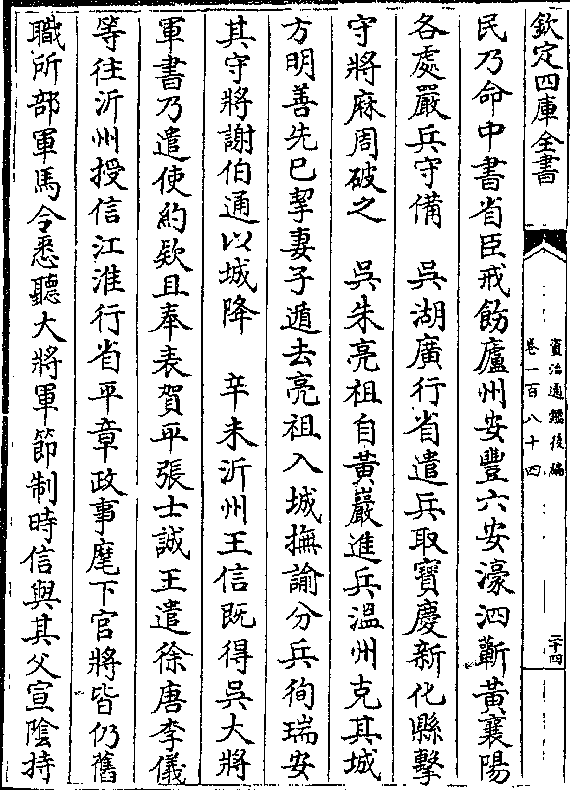 欽定四庫全書
資治通鑑後編
卷一百八十四
二十四
民乃命中書省臣戒飭廬州安豐六安濠泗蘄黃襄陽
各處嚴兵守備　吳湖廣行省遣兵取寶慶新化縣擊
守將麻周破之　吳朱亮祖自黃巖進兵溫州克其城
方明善先已挈妻子遁去亮祖入城撫諭分兵徇瑞安
其守將謝伯通以城降　辛未沂州王信既得吳大將
軍書乃遣使約欵且奉表賀平張士誠王遣徐唐李儀
等往沂州授信江淮行省平章政事麾下官將皆仍舊
職所部軍馬令悉聽大將軍節制時信與其父宣陰持